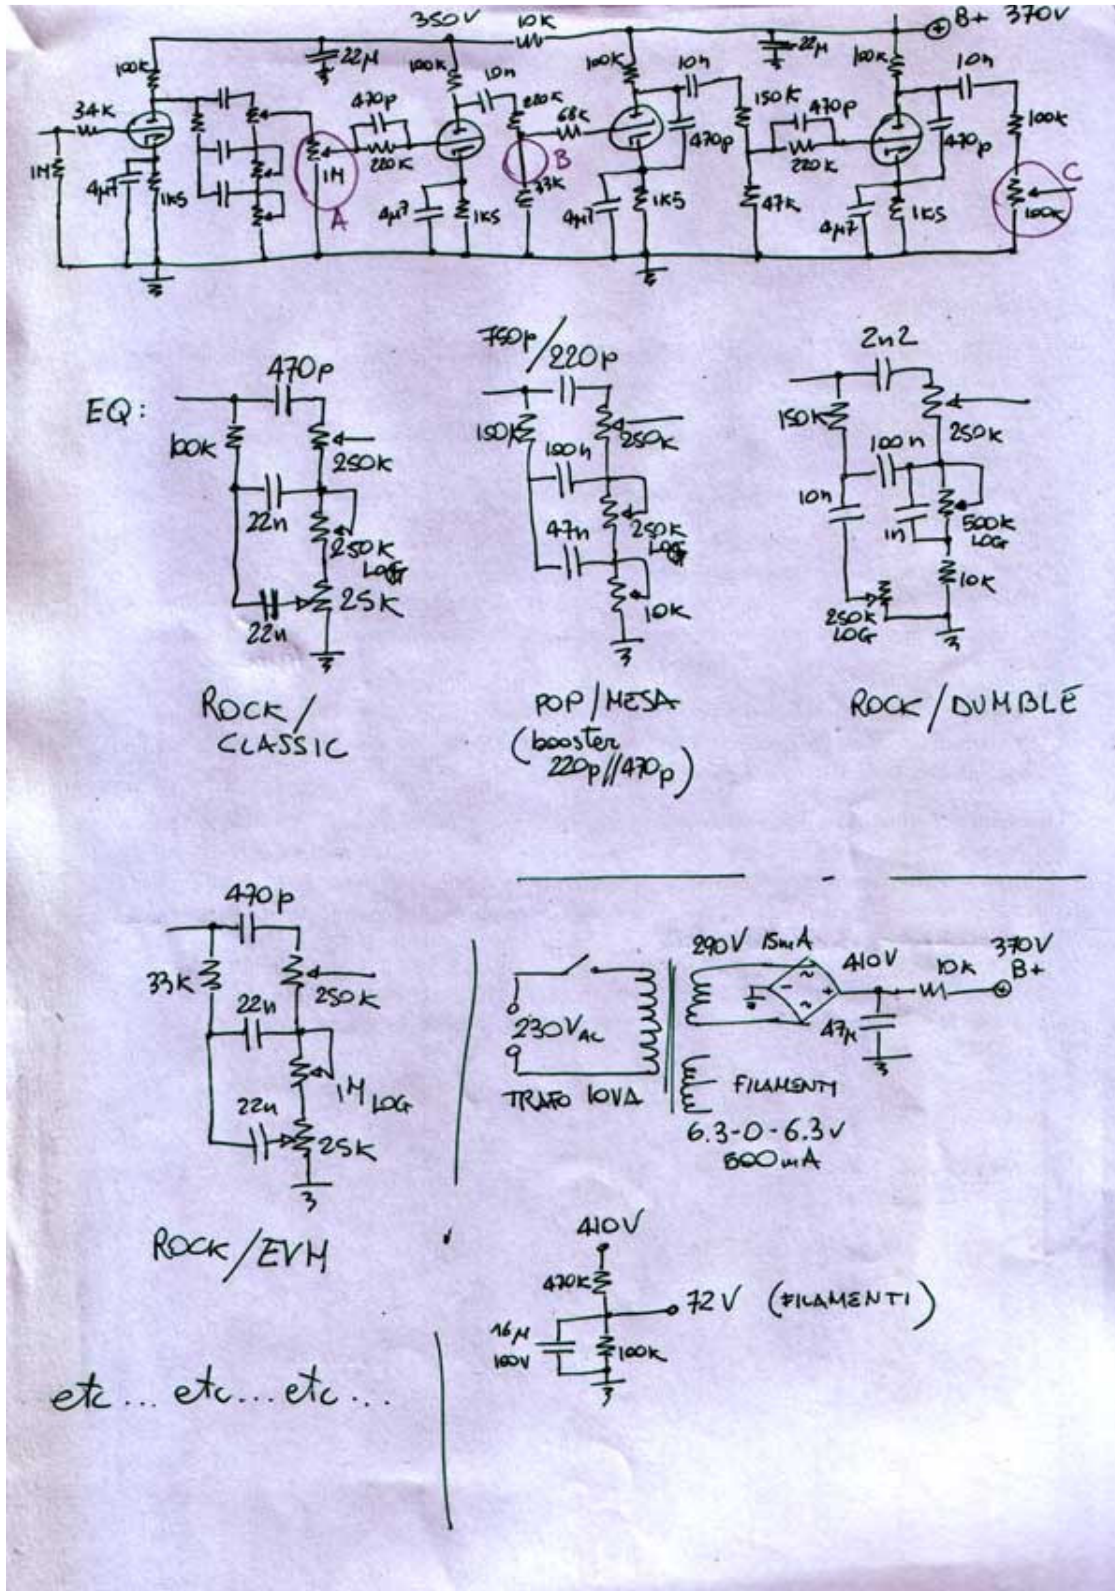 350V 10K B+ 370V
100K 22µ 100K 10n 100K 10n 22µ 100K 10n
34K 470p 220K 68K 150K 470p 100K
1M 4µ7 1K5 1M 220K B 33K 470p 220K 470p C
A 4µ7 1K5 4µ7 1K5 47K 4µ7 1K5 100K
EQ:
470p
100K
250K
22n
250K
LOG
25K
22n
ROCK/
CLASSIC
750p/220p
150K
250K
100n
47n
250K
LOG
10K
POP/MESA
(booster
220p//470p)
2n2
150K
250K
100n
10n
1n
500K
LOG
10K
250K
LOG
ROCK/DUMBLE
470p
33K
250K
22n
1M LOG
22n
25K
ROCK/EVM
etc... etc... etc...
290V 15mA 410V 10K 370V
B+
230VAC
47µ
TRAFO 10VA
FILAMENTI
6.3-0-6.3V
800mA
410V
470K
72V (FILAMENTI)
16µ
100V
100K